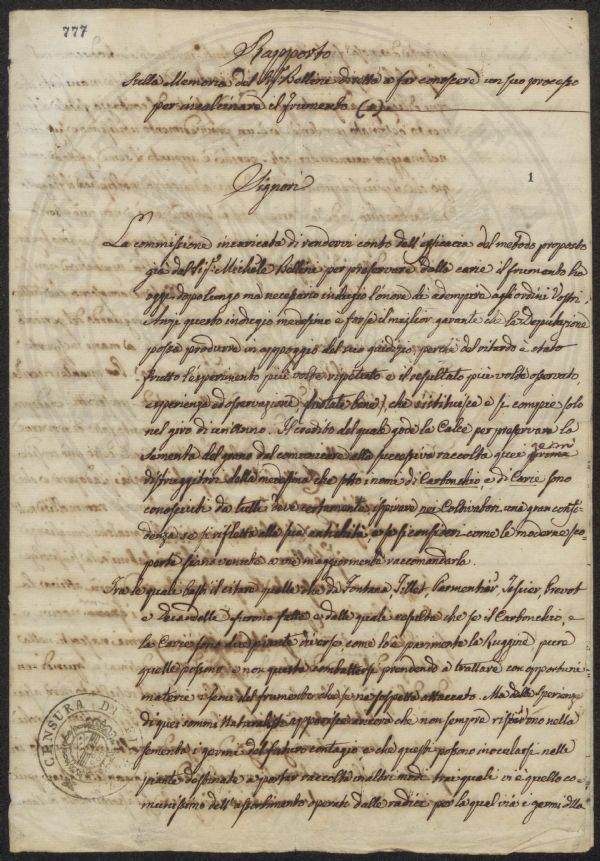 777
Rapporto
Sulla Memoria del Sig.r Bellini diretta a far conoscere un suo processo
per incalcinare il frumento (a)
1
Signori
La commissione incaricata di rendervi conto dell'efficacia del metodo proposto
già dal Sig.r Michele Bellini per preservare dalla carie il frumento ha
oggi dopo lungo ma necessario indugio l'onore di adempire agli ordini Vostri
Anzi questo indugio medesimo è forse il miglior garante che la Deputazione
possa produrre in appoggio del suo giudizio, perchè del ritardo è stato
frutto l'esperimento più volte ripetuto e il resultato più volte osservato,
esperienza ed osservazione (notate bene), che s'istituisce e si compie solo
nel giro di un anno. Il credito del quale gode la Calce per preservare la
sementa del grano dal comunicare alla successiva raccolta quei germi
distruggitori della medesima che sotto i nomi di Carbonchio e di Carie sono
conosciuti da tutti deve certamente ispirare nei Coltivatori una gran confi-
denza se si rifletta alla sua antichità, e se si consideri come le moderne sco-
perte siano venute a vie maggiormente raccomandarla.
Tra le quali basti il citare quelle che da Fontana, Tillet, Parmentier, Tessier, Prevot
e Decandolle furono fatte e dalle quali resulta che se il Carbonchio, e
la Carie sono due piante diverse come lo è parimente la Ruggine pure
quelle possono e non questa combattersi prendendo a trattare con opportune
materie i semi del frumento che se ne sospetta attaccato. Ma dalle sperienze
di quei sommi Naturalisti apparisce ancora che non sempre risiedono nella
sementa i germi del futuro contagio e che questi possono inocularsi nelle
piante destinate a portar raccolta in altri modi tra i quali vi è quello co-
munissimo dell'assorbimento operato dalle radici per la qual via i germi della
CENSURA DI